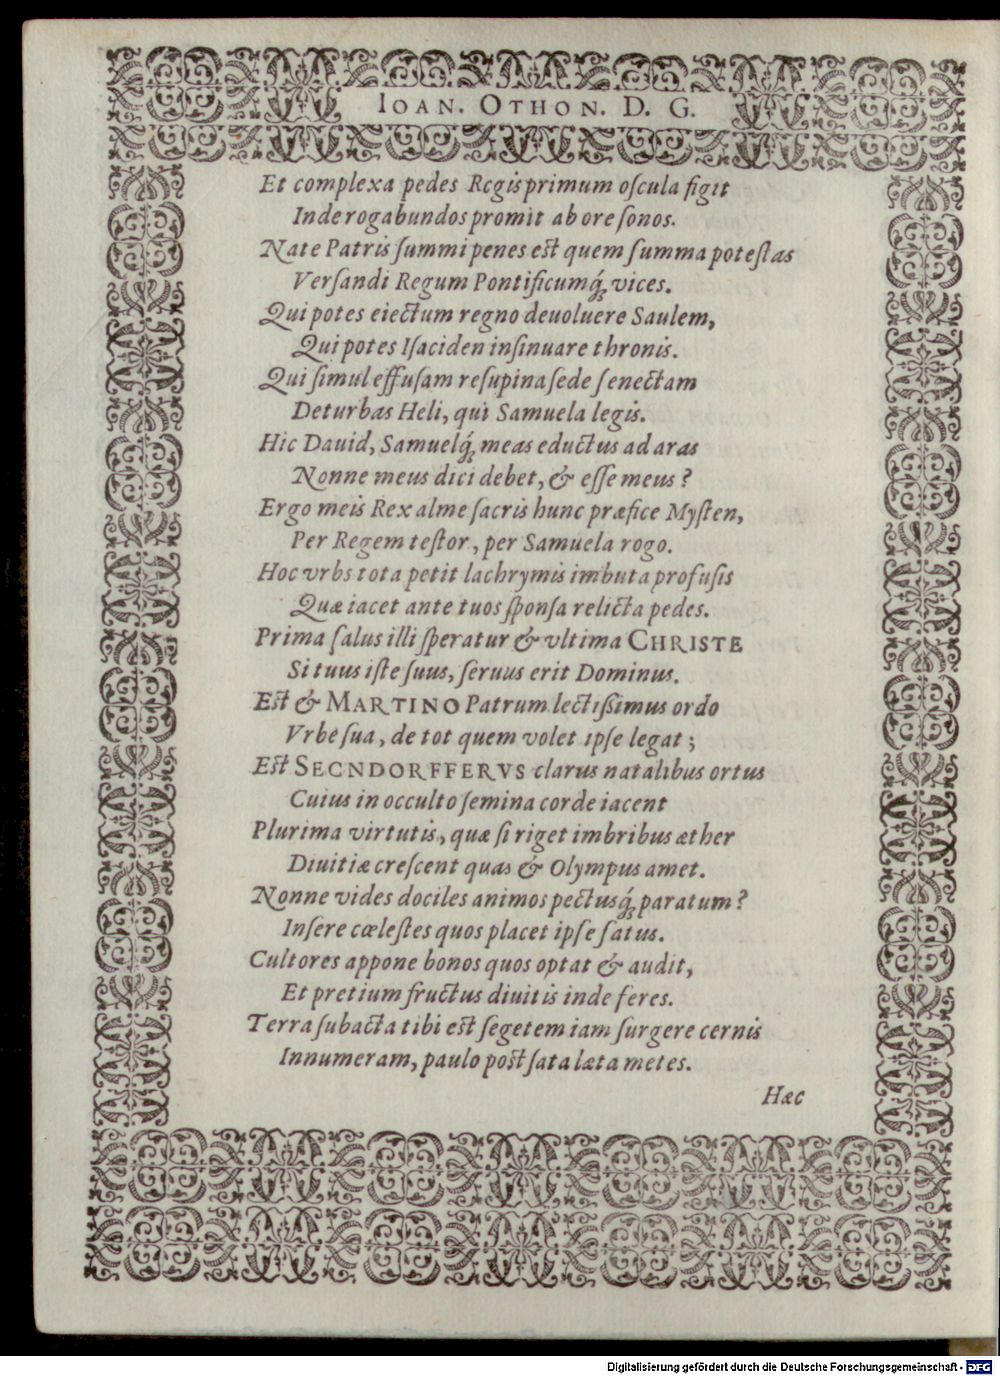 IOAN. OTHON. D. G.
Et complexa pedes Regis primum oſcula figit
Inde rogabundos promit ab ore ſonos.
Nate Patris ſummi penes est quem ſumma poteſtas
Verſandi Regum Pontificumq́; vices.
Qui potes eiectum regno deuoluere Saulem,
Qui potes Iſaciden inſinuare thronis.
Qui ſimul effuſam reſupina ſede ſenectam
Deturbas Heli, qui Samuela legis.
Hic Dauid, Samuelq́; meas eductus ad aras
Nonne meus dici debet, & eſſe meus?
Ergo meis Rex alme ſacris hunc præfice Myſten,
Per Regem teſtor, per Samuela rogo.
Hoc vrbs tota petit lachrymis imbuta profuſis
Quæ iacet ante tuos ſponſa relicta pedes.
Prima ſalus illi ſperatur & vltima CHRISTE
Si tuus iſte ſuus, ſeruus erit Dominus.
Est & MARTINO Patrum lectißimus ordo
Vrbe ſua, de tot quem volet ipſe legat;
Est SECNDORFFERVS clarus natalibus ortus
Cuius in occulto ſemina corde iacent
Plurima virtutis, quæ ſi riget imbribus æther
Diuitiæ creſcent quas & Olympus amet.
Nonne vides dociles animos pectusq́; paratum?
Inſere cœleſtes quos placet ipſe ſatus.
Cultores appone bonos quos optat & audit,
Et pretium fructus diuitis inde feres.
Terra ſubacta tibi est ſegetem iam ſurgere cernis
Innumeram, paulo post ſata læta metes.
Hæc
Digitalisierung gefördert durch die Deutsche Forschungsgemeinschaft - DFG